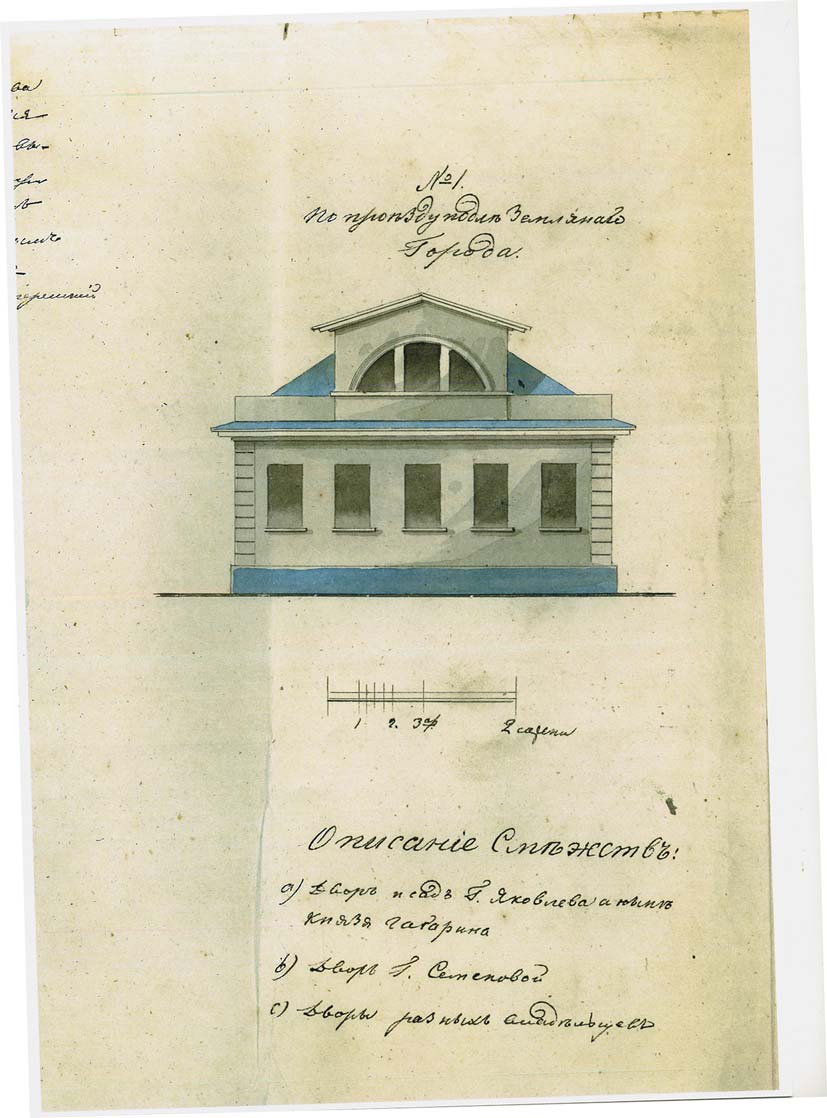 ва
ся
вы-
-
герешкій
№ 1.
По проѣзду подлѣ Землянаго
Города.
1 2. 3 ар. 2 сажени
Описаніе Смѣжствъ:
a) Дворъ и садъ Г. Яковлева а нынѣ
Князя Гагарина
b) Дворъ Г. Семеновой
c) Дворы разныхъ владѣльцевъ